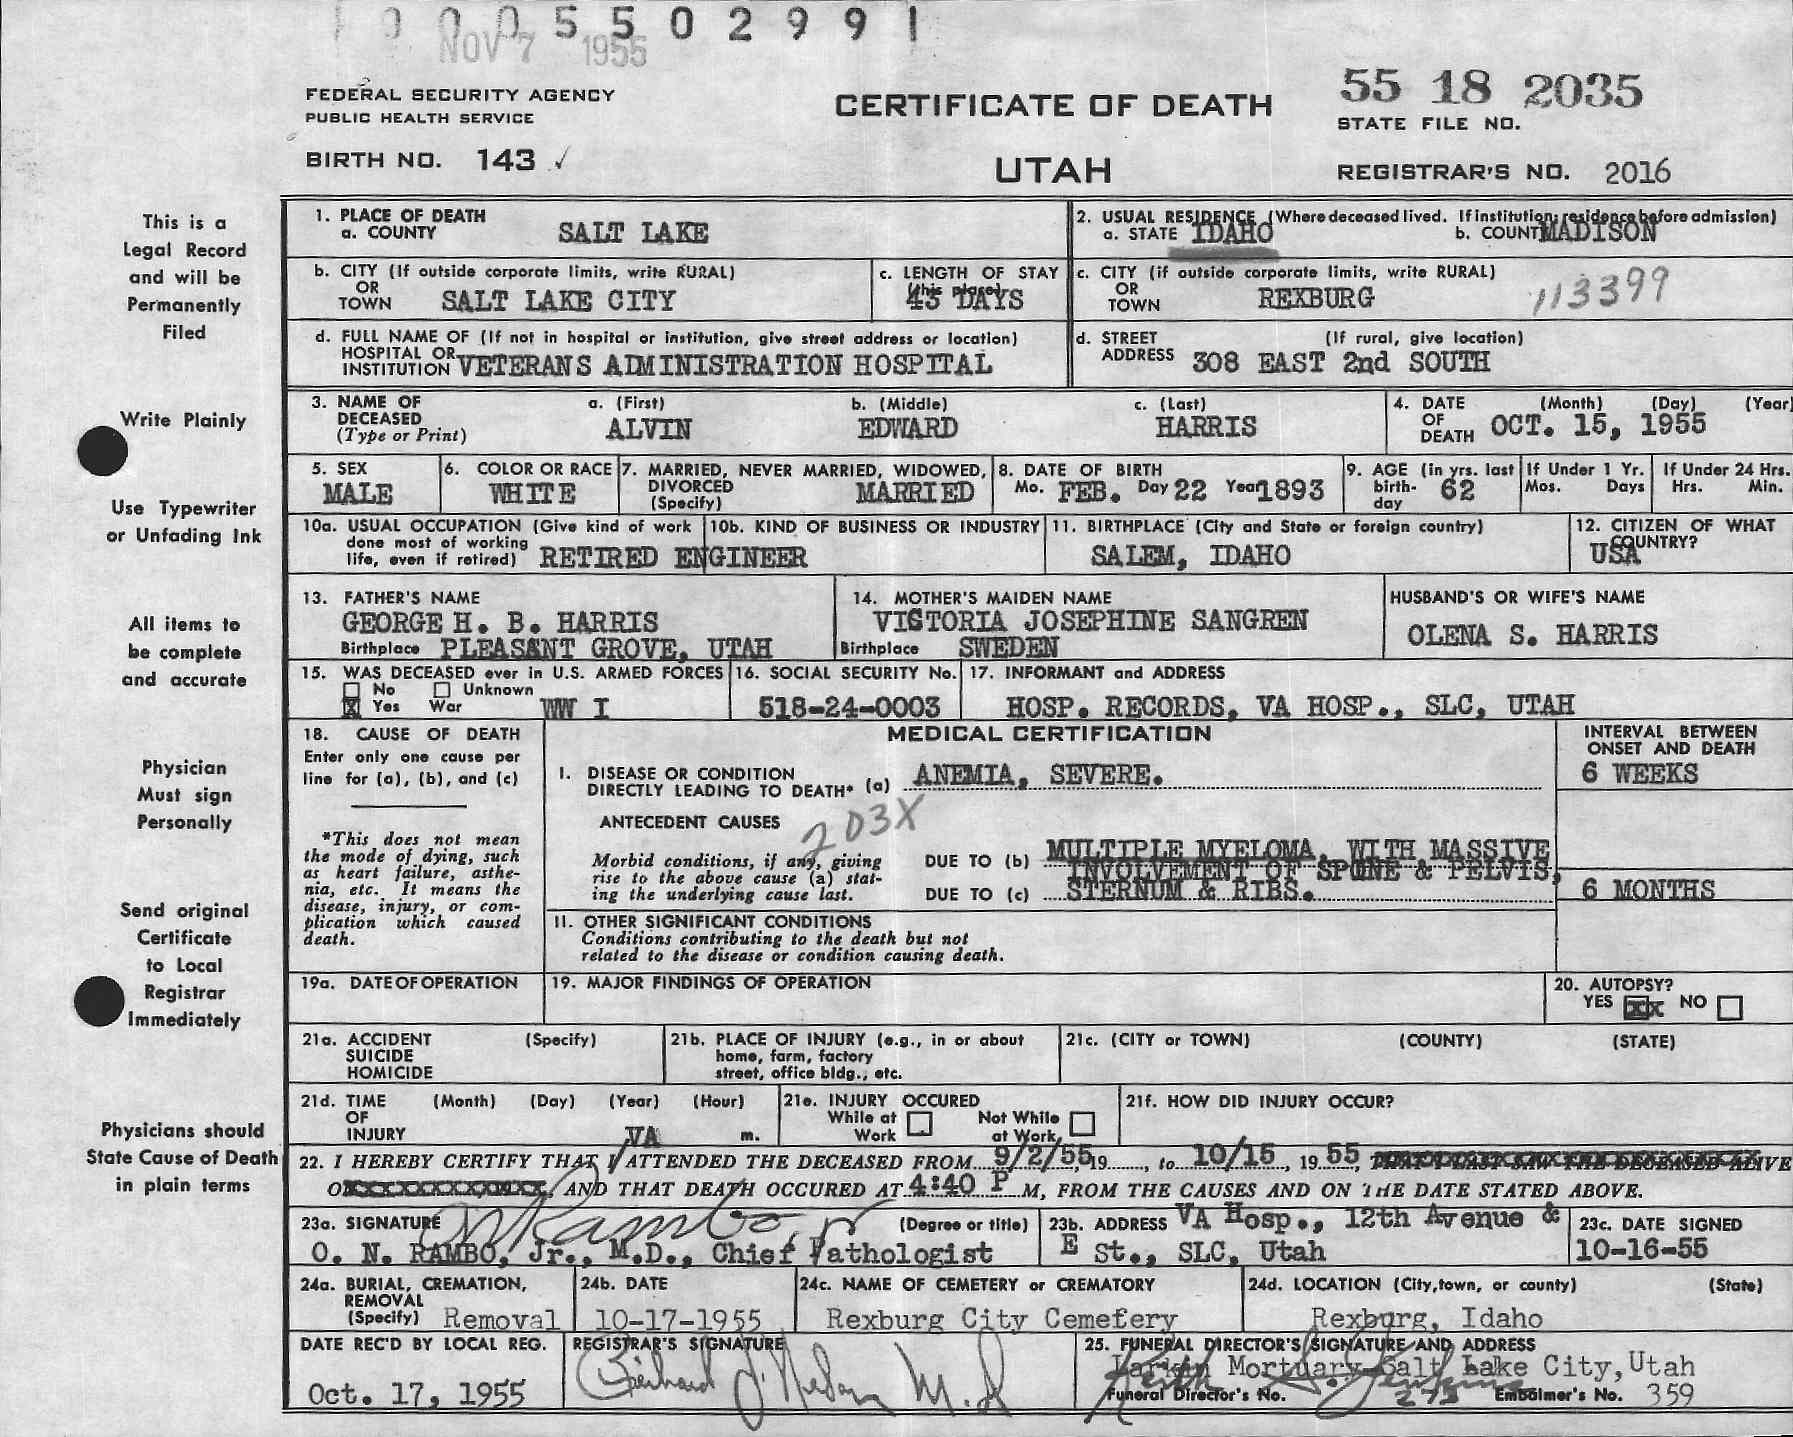 1 0 0 0 5 5 0 2 9 9 1
NOV 7 1955
FEDERAL SECURITY AGENCY
PUBLIC HEALTH SERVICE
BIRTH NO. 143 ✓
CERTIFICATE OF DEATH
UTAH
55 18 2035
STATE FILE NO.
REGISTRAR'S NO. 2016
This is a
Legal Record
and will be
Permanently
Filed
Write Plainly
Use Typewriter
or Unfading Ink
All items to
be complete
and accurate
Physician
Must sign
Personally
Send original
Certificate
to Local
Registrar
Immediately
Physicians should
State Cause of Death
in plain terms
1. PLACE OF DEATH
a. COUNTY SALT LAKE
2. USUAL RESIDENCE (Where deceased lived. If institution: residence before admission)
a. STATE IDAHO b. COUNTY MADISON
b. CITY (If outside corporate limits, write RURAL)
OR
TOWN SALT LAKE CITY
c. LENGTH OF STAY
(this place)
43 DAYS
c. CITY (if outside corporate limits, write RURAL)
OR
TOWN REXBURG
113399
d. FULL NAME OF (If not in hospital or institution, give street address or location)
HOSPITAL OR
INSTITUTION VETERANS ADMINISTRATION HOSPITAL
d. STREET (If rural, give location)
ADDRESS 308 EAST 2nd SOUTH
3. NAME OF
DECEASED
(Type or Print)
a. (First) b. (Middle) c. (Last)
ALVIN EDWARD HARRIS
4. DATE (Month) (Day) (Year)
OF
DEATH OCT. 15, 1955
5. SEX
MALE
6. COLOR OR RACE
WHITE
7. MARRIED, NEVER MARRIED, WIDOWED,
DIVORCED
(Specify) MARRIED
8. DATE OF BIRTH
Mo. FEB. Day 22 Year 1893
9. AGE (in yrs. last
birth-
day 62
If Under 1 Yr.
Mos. Days
If Under 24 Hrs.
Hrs. Min.
10a. USUAL OCCUPATION (Give kind of work
done most of working
life, even if retired) RETIRED ENGINEER
10b. KIND OF BUSINESS OR INDUSTRY
11. BIRTHPLACE (City and State or foreign country)
SALEM, IDAHO
12. CITIZEN OF WHAT
COUNTRY?
USA
13. FATHER'S NAME
GEORGE H. B. HARRIS
Birthplace PLEASANT GROVE, UTAH
14. MOTHER'S MAIDEN NAME
VICTORIA JOSEPHINE SANGREN
Birthplace SWEDEN
HUSBAND'S OR WIFE'S NAME
OLENA S. HARRIS
15. WAS DECEASED ever in U.S. ARMED FORCES
No Unknown
X Yes War WW I
16. SOCIAL SECURITY No.
518-24-0003
17. INFORMANT and ADDRESS
HOSP. RECORDS, VA HOSP., SLC, UTAH
18. CAUSE OF DEATH
Enter only one cause per
line for (a), (b), and (c)
*This does not mean
the mode of dying, such
as heart failure, asthe-
nia, etc. It means the
disease, injury, or com-
plication which caused
death.
MEDICAL CERTIFICATION
INTERVAL BETWEEN
ONSET AND DEATH
I. DISEASE OR CONDITION
DIRECTLY LEADING TO DEATH* (a) ANEMIA, SEVERE.
6 WEEKS
ANTECEDENT CAUSES 203X
Morbid conditions, if any, giving
rise to the above cause (a) stat-
ing the underlying cause last.
DUE TO (b) MULTIPLE MYELOMA, WITH MASSIVE
INVOLVEMENT OF SPONE & PELVIS,
DUE TO (c) STERNUM & RIBS.
6 MONTHS
II. OTHER SIGNIFICANT CONDITIONS
Conditions contributing to the death but not
related to the disease or condition causing death.
19a. DATE OF OPERATION
19. MAJOR FINDINGS OF OPERATION
20. AUTOPSY?
YES XX NO
21a. ACCIDENT (Specify)
SUICIDE
HOMICIDE
21b. PLACE OF INJURY (e.g., in or about
home, farm, factory
street, office bldg., etc.
21c. (CITY or TOWN) (COUNTY) (STATE)
21d. TIME (Month) (Day) (Year) (Hour)
OF
INJURY m.
21e. INJURY OCCURED
While at Work
Not While at Work
21f. HOW DID INJURY OCCUR?
VA
22. I HEREBY CERTIFY THAT I ATTENDED THE DECEASED FROM 9/2/55, 19 , to 10/15, 19 55, THAT I LAST SAW THE DECEASED ALIVE
O , AND THAT DEATH OCCURED AT 4:40 P M, FROM THE CAUSES AND ON THE DATE STATED ABOVE.
23a. SIGNATURE Rambo, Jr (Degree or title)
O. N. RAMBO, Jr., M.D., Chief Pathologist
23b. ADDRESS VA Hosp., 12th Avenue &
E St., SLC, Utah
23c. DATE SIGNED
10-16-55
24a. BURIAL, CREMATION,
REMOVAL
(Specify) Removal
24b. DATE
10-17-1955
24c. NAME OF CEMETERY or CREMATORY
Rexburg City Cemetery
24d. LOCATION (City, town, or county) (State)
Rexburg, Idaho
DATE REC'D BY LOCAL REG.
Oct. 17, 1955
REGISTRAR'S SIGNATURE
M.D
25. FUNERAL DIRECTOR'S SIGNATURE AND ADDRESS
Larkin Mortuary Salt Lake City, Utah
Funeral Director's No. 275 Embalmer's No. 359